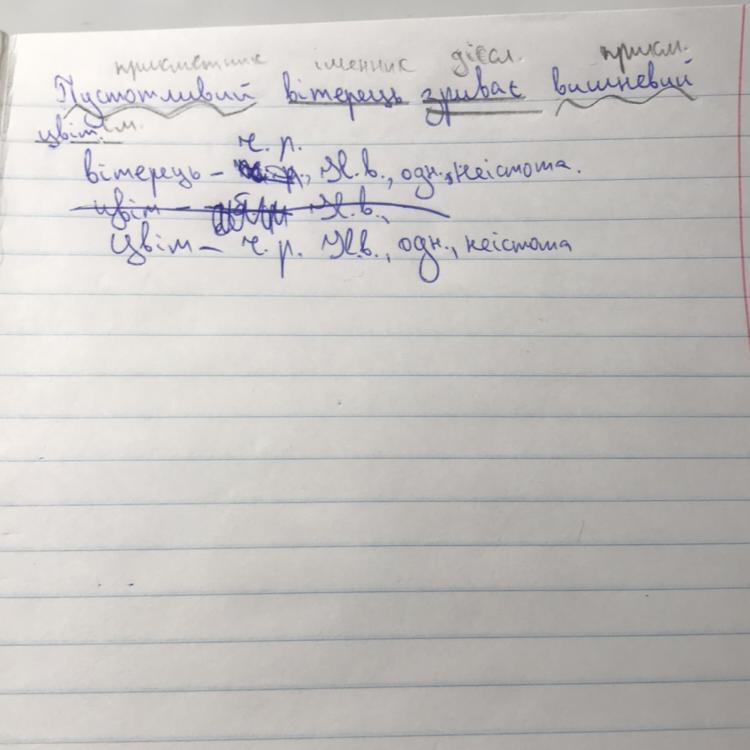 прикметник іменник дієсл. прикм.
Пустотливий вітерець зриває вишневий
цвіт. ім.
ч. р.
вітерець – , Н.в., одн., неістота.
цвіт – Н.в.,
Цвіт – ч. р. Н.в., одн., неістота